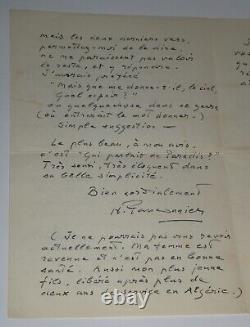 mais les deux derniers vers,
permettez-moi de le dire,
ne me paraissent pas valoir
le reste, et y répondre.
J'aurais préféré
"Mais que me donne-t-il, le ciel,
Quel espoir?"
ou quelque chose dans ce genre
(où entrerait le moi donner.)
Simple suggestion —
Le plus beau, à mon avis,
c'est "Qui parlait de Paradis?"
Très senti, très éloquent dans
sa belle simplicité.
Bien cordialement
(Je ne pourrais pas vous revoir
actuellement. Ma femme est
revenue et n'est pas en bonne
santé. Aussi mon plus jeune
fils, libéré après plus de
deux ans de service en Algérie.)